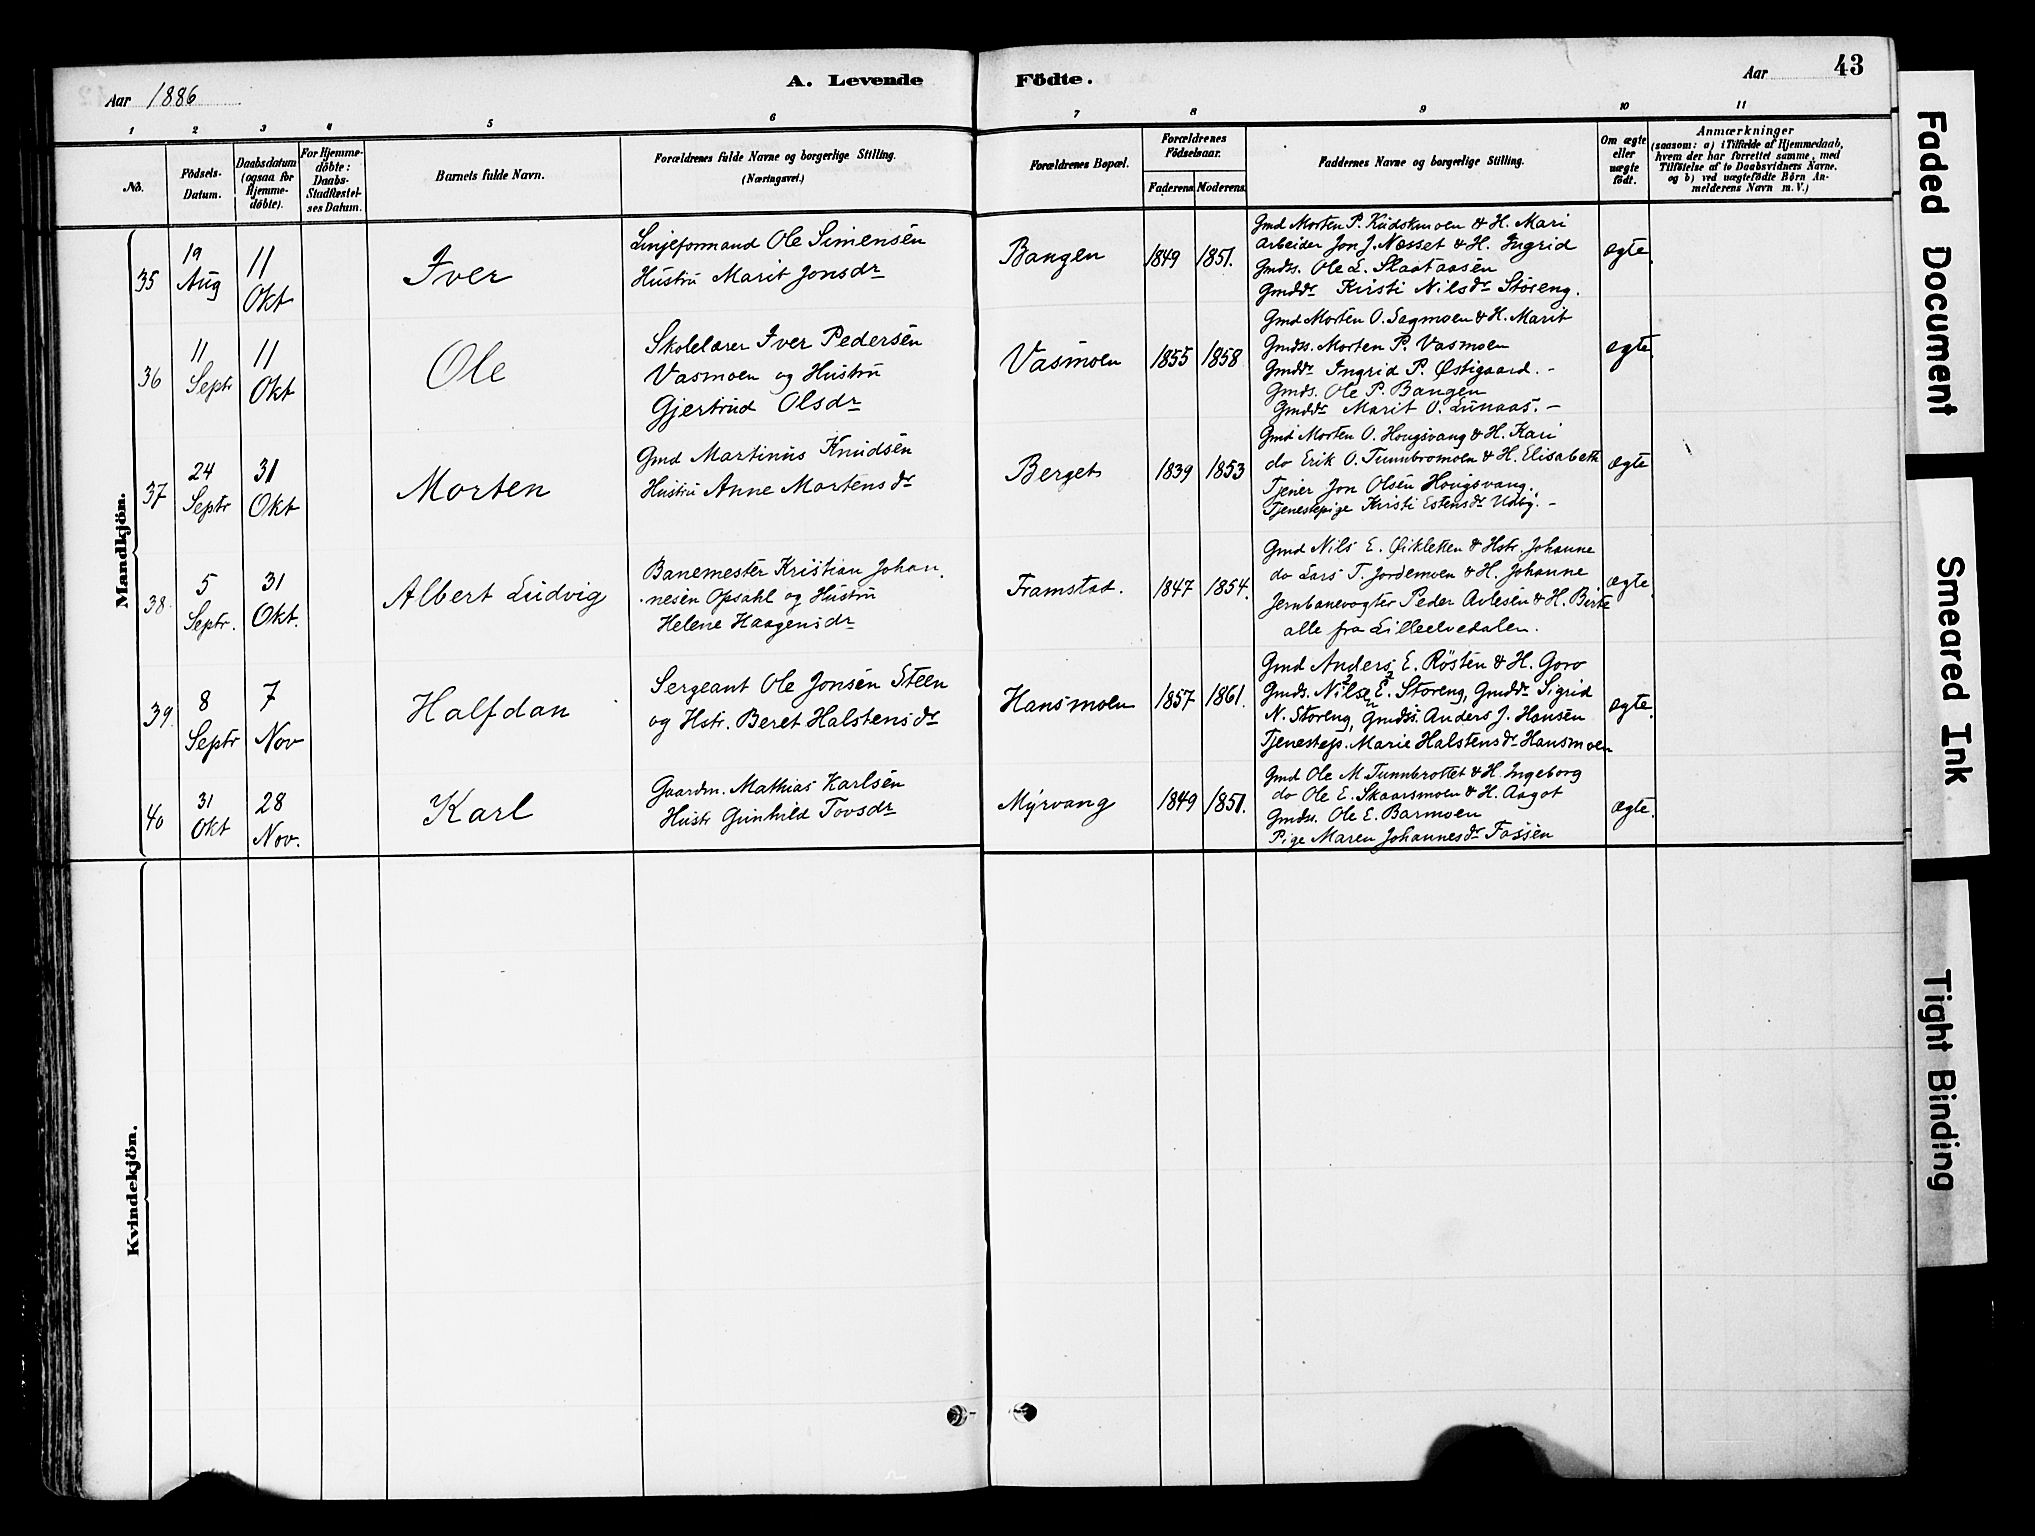 Aar 1886
A. Levende Födte.
Aar 43
1 2 3 4 5 6 7 8 9 10 11
No.
Födsels-
Datum.
Daabsdatum
(ogsaa for
Hjemme-
döbte).
For Hjemme-
döbte:
Daabs-
Stadfæstel-
ses Datum.
Barnets fulde Navn.
Forældrenes fulde Navne og borgerlige Stilling.
(Næringsvei.)
Forældrenes Bopæl.
Forældrenes
Födselsaar.
Faderens Moderens
Faddernes Navne og borgerlige Stilling.
Om ægte
eller
uægte
födt.
Anmærkninger
(saasom: a) i Tilfælde af Hjemmedaab,
hvem der har forrettet samme, med
Tilföielse af to Daabsvidners Navne.
og b) ved uægtefödte Börn An-
melderens Navn m. V.)
Mandkjön.
35
19
Aug
11
Okt
Iver
Linjeformand Ole Simensen
Hustru Marit Jonsdr
Bangen
1849 1851.
Gmd Morten P. Kudskmoen & H. Mari
Arbeider Jon J. Næsset & H. Ingrid
Gmdss. Ole E. Slaataasen
Gmddr Kirsti Nilsdr Støreng.
ægte.
36
11
Septr
11
Okt
Ole
Skolelærer Iver Pedersen
Vasmoen og Hustru
Gjertrud Olsdr
Vasmoen
1855 1858
Gmd Morten O. Segmoen & H. Marit
Gmdss. Morten P. Vasmoen
Gmddr Ingrid P. Østigaard. -
Gmds. Ole P. Bangen
Gmddr Marit O. Lunaas. -
ægte.
37
24
Septr
31
Okt
Morten
Gmd Martinus Knudsen
Hustru Anne Mortensdr
Berget
1839 1853
Gmd Morten O. Hougsvang & H. Kari
do Erik O. Tunnbromoen & H. Elisabeth
Tjener Jon Olsen Hougsvang.
Tjenestepige Kirsti Estensdr Udby. -
ægte
38
5
Septr.
31
Okt.
Albert Ludvig
Banemester Kristian Johan-
nesen Opsahl og Hustru
Helene Haagensdr
Framstad.
1847 1854.
Gmd Nils E. Øikletten & Hstr. Johanne
do Lars T. Jordemoen & H. Johanne
Jernbanevogter Peder Avlesen & H. Birte
alle fra Lilleelvedalen.
ægte.
39.
8
Septr
7
Nov
Halfdan
Sergeant Ole Jonsen Steen
og Hstr. Beret Halstensdr
Hansmoen
1857 1861.
Gmd Anders E. Røsten & H. Goro
Gmds. Nilse E. Storeng, Gmddr Sigrid
N. Storeng, Gmdss. Anders J. Hansen
Tjenestep. Marie Halstensdr Hansmoen
ægte.
40
31
Okt
28
Nov.
Karl
Gaardm. Mathias Karlsen
Hustr Gunhild Tovsdr
Myrvang
1849 1851.
Gmd Ole M. Tunnbrottet & H. Ingeborg
do Ole E. Skaarsmoen & H. Aagot
Gmdss. Ole E. Barmoen
Pige Maren Johannesdr Fossen
ægte.
Kvindekjön.
Faded Document
Smeared Ink
Tight Binding